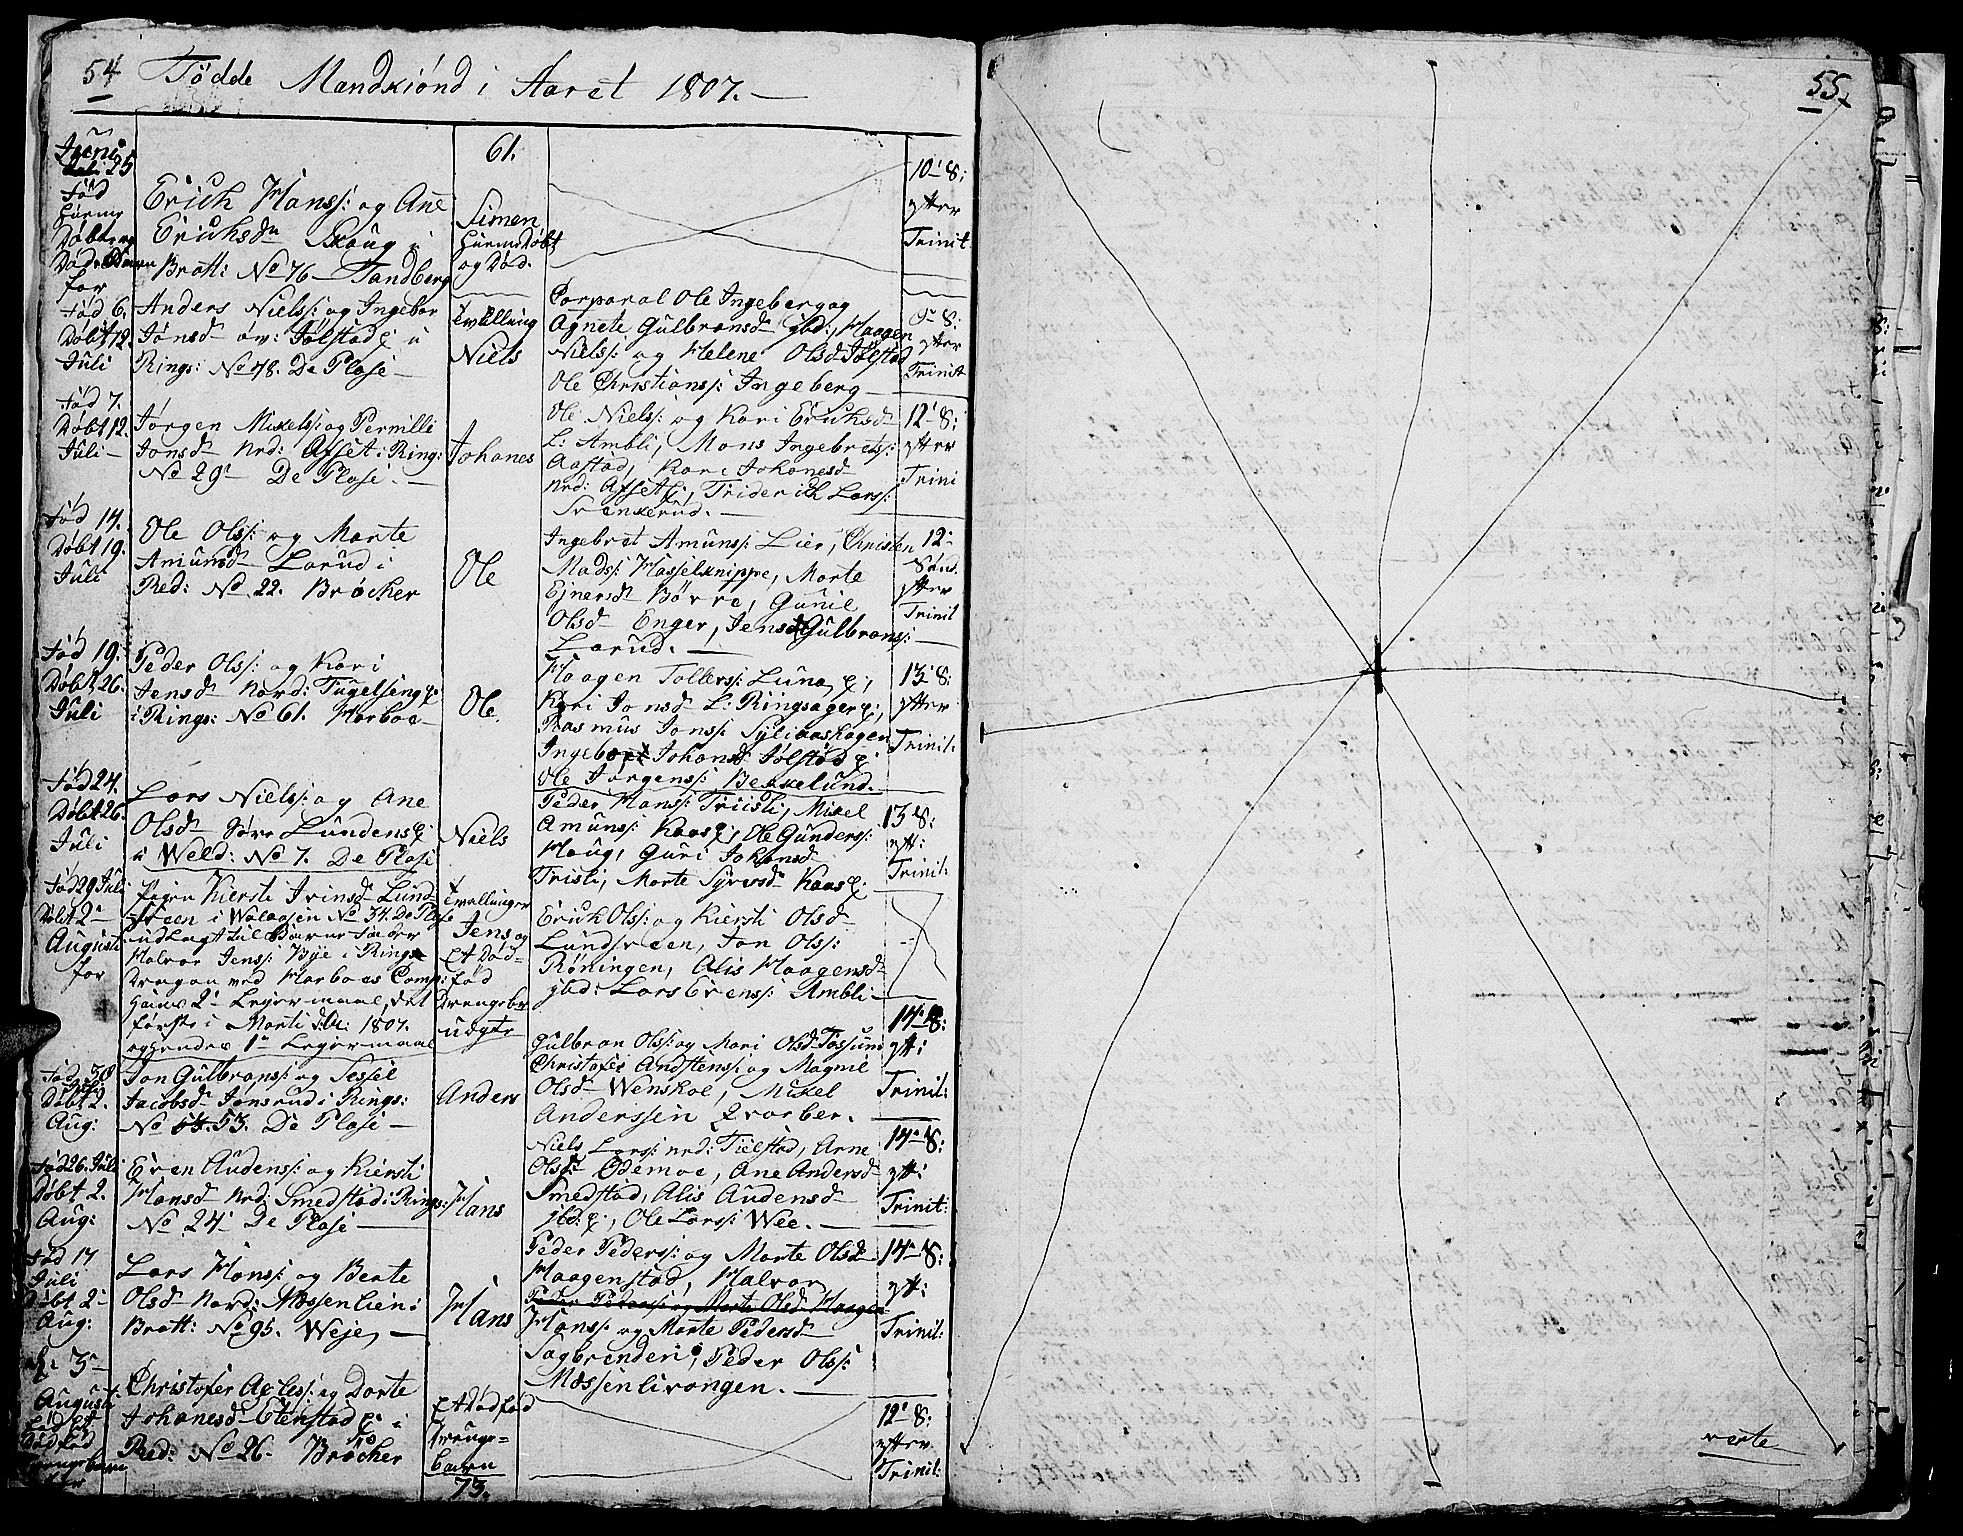 54 Fødde Mandkiønd i Aaret 1807. —
Juni
25
Fød
Hiemedøbt og
Død
for
Erich Hans: og Ane
Erichsd Skoug i
Brott: No 76 — Tandberg
61.
Simen
Hiemedøbt
og Død.
10 - 8:
etter
Trinit
Fød 6.
Døbt 12.
Juli
Anders Niels: og Ingebor
Jonsd øv: Jølstad ej: i
Rings: No 48. De Plase —
Tvilling
Niels
Corporal Ole Ingeberg og
Agnete Gulbransd ibd:, Haagen
Niels: og Helene Olsd Jølstad
Ole Christians: Ingeberg —
8:
etter
Trinit
Fød 7.
Døbt 12.
Juli —
Jørgen Mikels: og Pernille
Jonsd Nrd: Afset i Ring:
No 29 — De Plase. —
Johanes
Ole Niels: og Kari Erichsd
L: Ambli, Mons Ingebrets:
Aastad, Kari Johanesd
Nrd: Afset ej:, Friderich Lars:
12 - 8:
etter
Trini
Fød 14.
Døbt 19.
Juli
Ole Ols: og Marte
Amunsd Larud i
Red: No 22. Brøcher
Ole
Ingebret Amuns: Lier, Christen
Mads: Hasselknippe, Marte
Ejnersd Børre, Gunil
Olsd Enger, Jens Gulbrans:
Larud. —
12 -
Sønd.
etter
Trinit
Fød 19.
Døbt 26.
Juli
Peder Ols: og Kari
Jensd Nord: Fugelseng ej:
i Rings: No 61. Horboe —
Ole
Haagen Tollers: Luna ej:,
Kari Jonsd L: Ringsager ej:,
Rasmus Jons: Syliaashagen
Ingebor Johansd Jølstad ej:
Ole Jørgens: Berkelund. —
13 - 8:
etter
Trinit:
Fød 24.
Døbt 26.
Juli
Lars Niels: og Ane
Olsd Søre Lundens ej:
i Weld: No 7. De Plase
Niels
Peder Hans: Tristi, Mikel
Amuns: Kaas ej:, Ole Gunders:
Houg, Guri Johansd
Tristi, Marte Syversd Kaas ej:
13 8:
ett:
Trinit:
Fød 29 Juli
Døbt 2 -
Augusti
for
Pigen Kiersti Ivinsd Lund-
green i Walaasen No 34. De Plase
udlagt til Barne Fader
Halvor Jens: Bye i Rings
Dragon ved Horboes Comp:
Hans 2 - Lejermaal, det
første i Morti 1807.
og hendes 1 - Lejermaal
Tvillinger
Jens og
Et Død-
fød
Drengebn
udgtr —
Erich Ols: og Kiersti Olsd
Lundgreen, Jon Ols:
Røningen, Alis Haagensd
ibd: Lars Evens: Ambli —
Fød 30
Døbt 2.
Aug:
Jon Gulbrans: og Sessel
Jacobsd Jonsrud i Rings:
No 53. De Plase —
Anders
Gulbran Ols: og Mari Olsd Fossum
Christofer Andstens: og Magnil
Olsd Wenskoe, Mikel
Anderssen Qvarber.
14 - 8:
ett:
Trinit:
Fød 26. Juli
Døbt 2.
Aug:
Even Audens: og Kiersti
Hansd Nrd: Smedstad i Rings:
No 24 — De Plase —
Hans
Niels Lars: Nrd: Tielstad, Arne
Ols: Ødemoe, Ane Andersd
Smedstad, Alis Audensd
ibd: ej:, Ole Lars: Wee. —
14 - 8:
ett:
Trinit:
Fød 17
Juli
Døbt 2 -
Aug:
Lars Hans: og Berte
Olsd Nord: Mæssenlien i
Brott: No 95. Weje, —
Hans
Peder Peders: og Marte Olsd
Haagenstad, Halvor
Peder Peders: og Marte Olsd Haagen
Hans: og Marte Pedersd
Sagbrenderi, Peder Ols:
Mæssenlivangen. —
14 - 8:
ett:
Trinit:
3 -
Augusti
Død fød
Drengebarn
Christofer Axles: og Dorte
Johanesd Elenstad ej: i
Red: No 26. Brøcher
Et Dødfød
Drenge=
barn
73.
12 - 8:
etter
Trinit:
55
verte